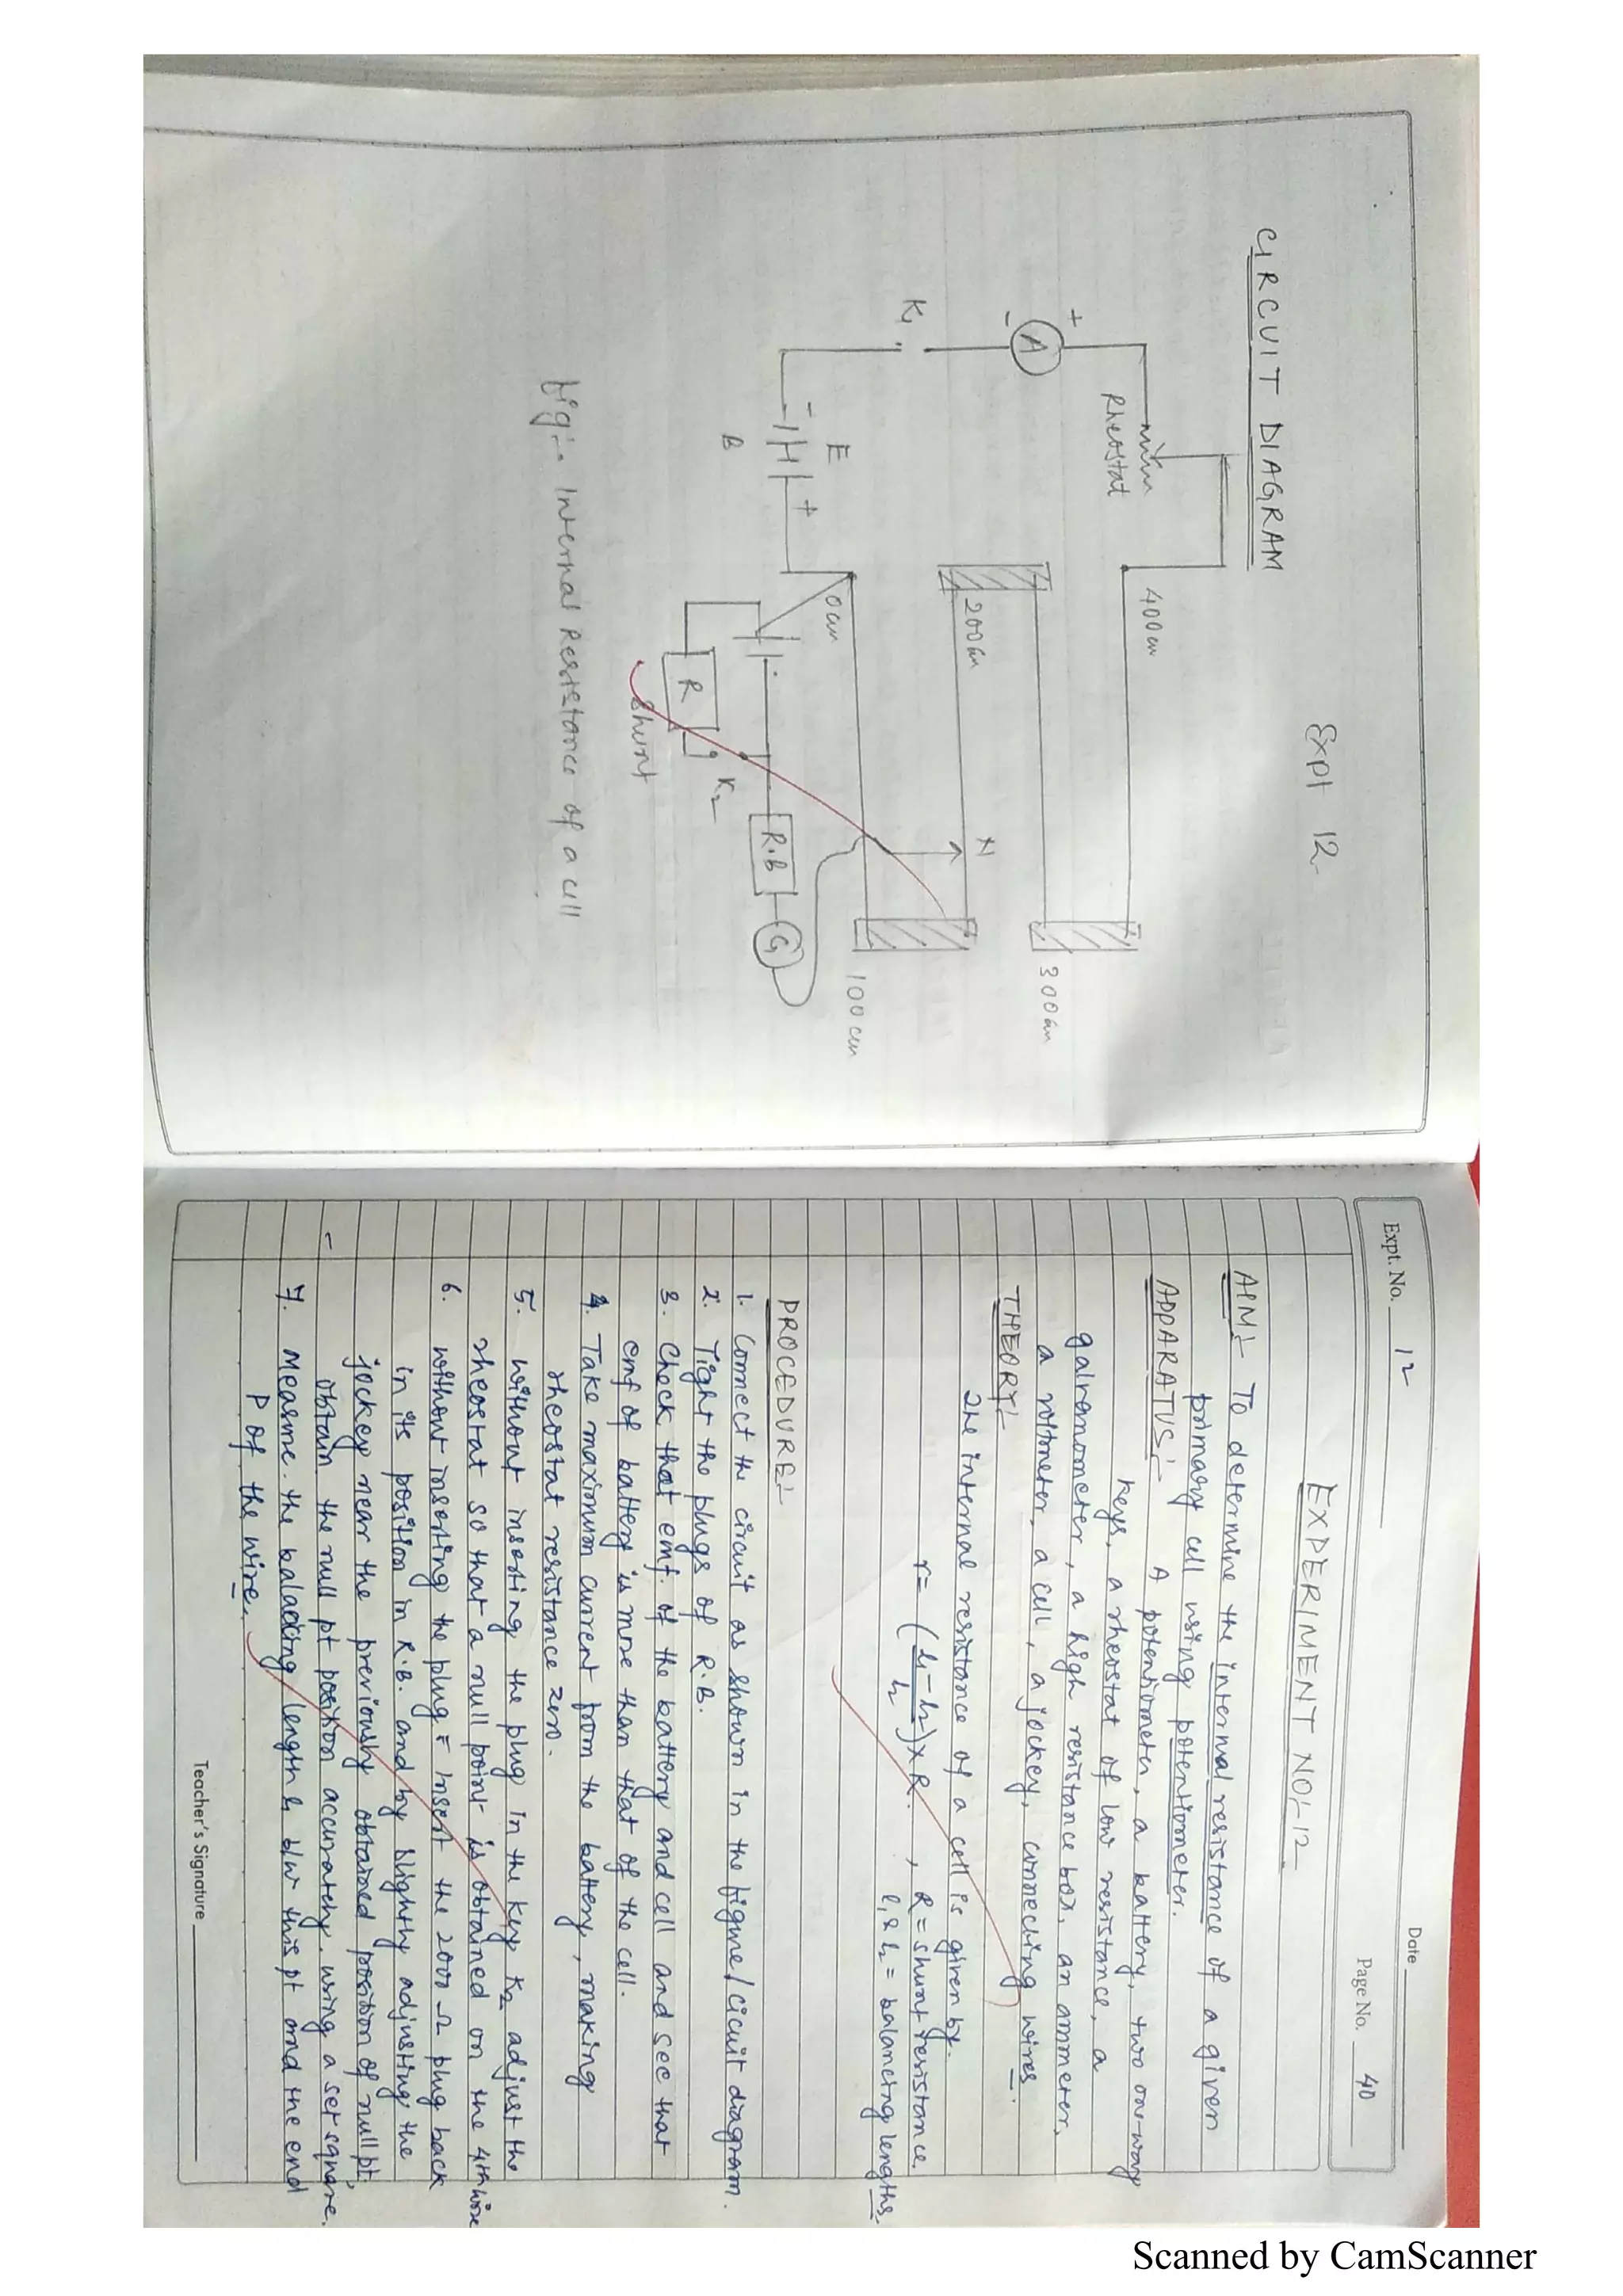 Expt 12
CIRCUIT DIAGRAM
400cm
Rheostat
+
A
-
K1
300cm
200cm
N
E
- +
B
0cm
100cm
R.B
G
R
K2
Shunt
fig:- Internal Resistance of a cell
Date
Expt. No. 12
Page No. 40
EXPERIMENT NO:-12
AIM:- To determine the internal resistance of a given
primary cell using potentiometer.
APPARATUS:- A potentiometer, a battery, two one-way
keys, a rheostat of low resistance, a
galvanometer, a high resistance box, an ammeter,
a voltmeter, a cell, a jockey, connecting wires.
THEORY:-
The internal resistance of a cell is given by.
r = (l1-l2/l2) x R. , R = shunt resistance.
l1 & l2 = balancing lengths.
PROCEDURE:-
1. Connect the circuit as shown in the figure/cicuit diagram.
2. Tight the plugs of R.B.
3. Check that emf. of the battery and cell and see that
emf of battery is more than that of the cell.
4. Take maximum current from the battery, making
rheostat resistance zero.
5. without inserting the plug in the key K2 adjust the
rheostat so that a null point is obtained on the 4th wire
6. without inserting the plug Insert the 2000 Ω plug back
in its position in R.B. and by slightly adjusting the
jockey near the previously obtained position of null pt,
obtain the null pt position accurately. using a set square.
7. Measure the balancing length l1 b/w this pt and the end
P of the wire.
Teacher's Signature
Scanned by CamScanner